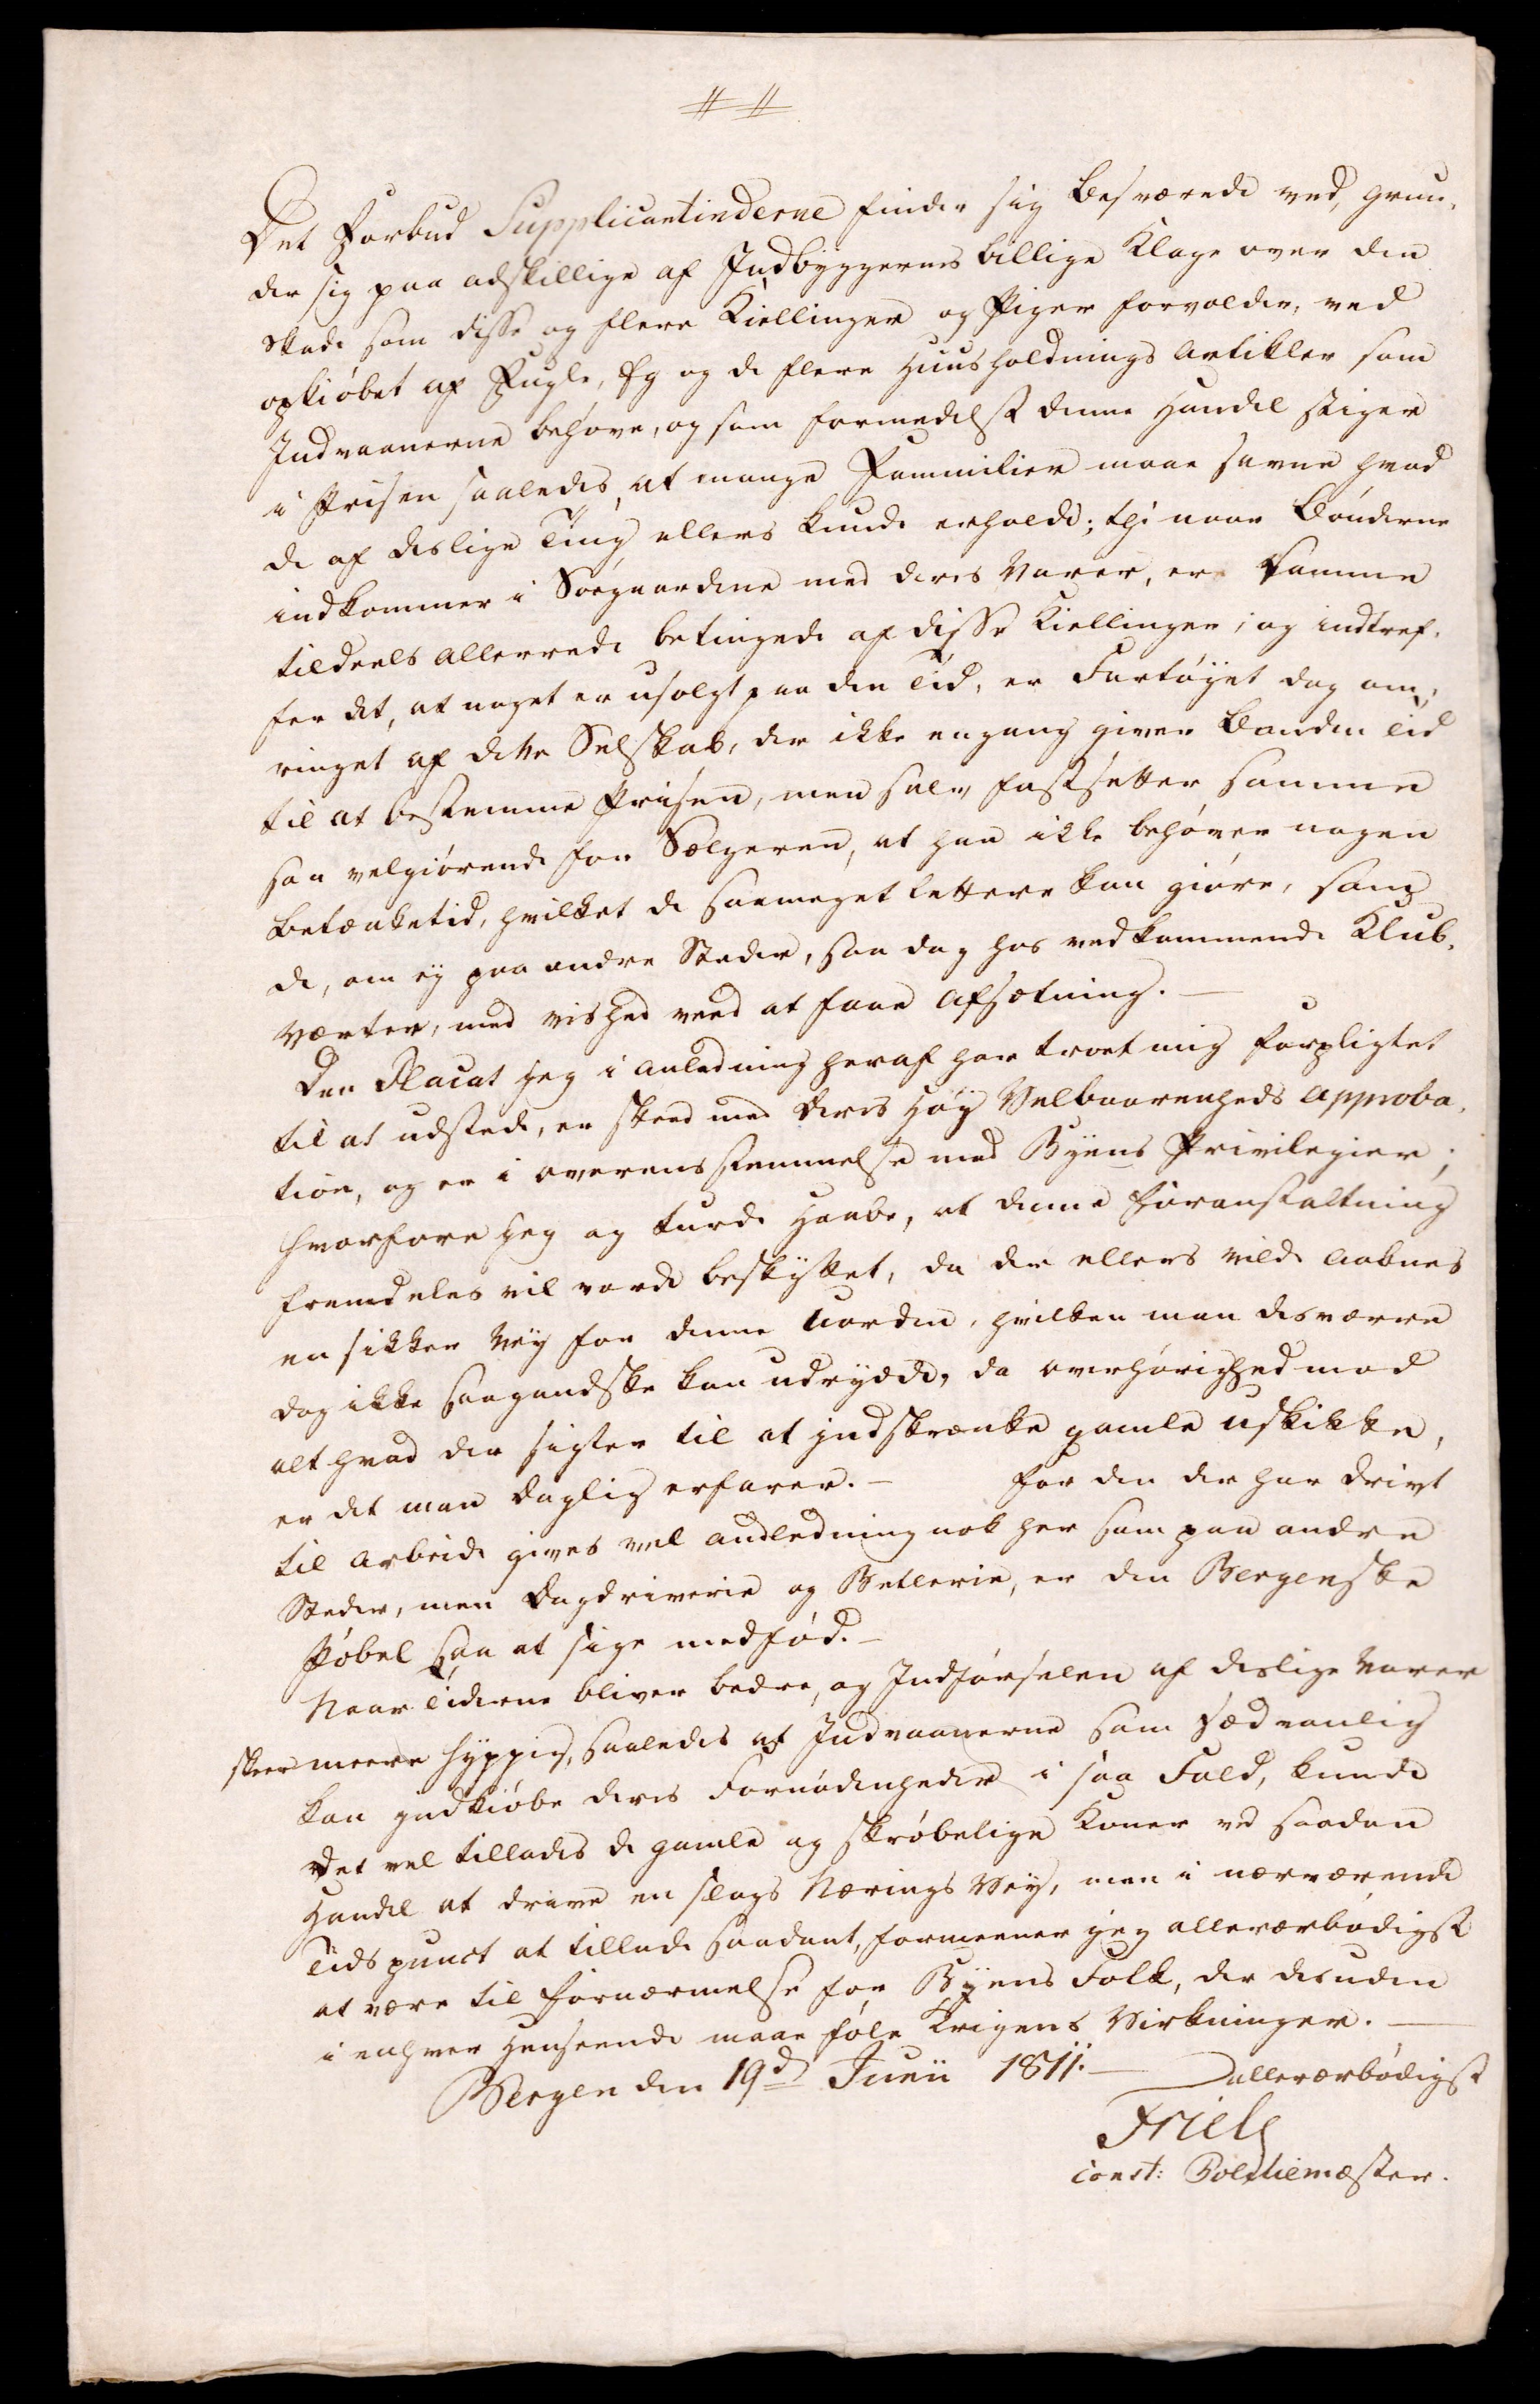 Det Forbud Supplicantinderne finder sig besværede ved, grun-
der sig paa adskillige af Indbyggernes billige Klage over den
Skade som disse og flere Kiellinger og Piger forvolder, ved
opkiöbet af Fugle, Eg og de flere Huusholdnings Artikler som
Indvaanerne behöve, og som formedelst denne Handel stiger
i Prisen saaledes, at mange Fammilier maae savne hvad
de af deslige Ting ellers kunde erholde; thi naar Bönderne
indkommer i Söegaardene med deres Varer, er Samme
tildeels allerrede betingede af disse Kiellinger; og indtref-
fer det, at noget er usolgt paa den Tid, er Fartöyet dog om-
ringet af dette Selskab, der ikke engang giver Bonden Tid
til at bestemme Prisen, men selv fastsetter samme
saa velgiörende for Sælgeren, at han ikke behöver nogen
Betænketid, hvilket de saameget lettere kan giöre, som
de, om ey paa andre Steder, saa dog hos vedkommende Klub-
værter, med vished veed at faae Afsætning. —
Den Placat jeg i Anledning heraf har troet mig forpligtet
til at udstede, er skeed med Deres Höy Velbaarenheds Approba-
tion, og er i overensstemmelse med Byens Privilegier;
hvorfore jeg og turde haabe, at denne Foranstaltning
fremdeles vil vorde beskyttet, da der ellers vilde aabnes
en sikker Vey for denne Uorden, hvilken man desværre
dog ikke saagandske kan udrydde, da overhörighed mod
alt hvad der sigter til at indskrænke gamle uskikke,
er det man daglig erfarer. — For den der har Drivt
til Arbeide gives vel Andledning nok her som paa andre
Steder, men Dagdriverie og Betlerie, er den Bergenske
Pöbel saa at sige medfød. —
Naar Tiderne bliver bedre, og Indförselen af deslige Varer
skeer meere hyppig, saaledes at Indvaanerne som Sædvanlig
kan indkiöbe deres Fornödenheder i saa Fald, kunde
det vel tillades de gamle og skröbelige Koner ved saadan
Handel at drive en slags Nærings Vey, men i nærværende
Tidspunct at tillade saadant, formeener jeg allerærbödigst
at være til Fornærmelse for Byens Folk, der desuden
i enhver Henseende maae föle Krigens Virkninger. —
Bergen den 19d Junii 1811. — allerærbödigst
Friele
const: Politiemæster.